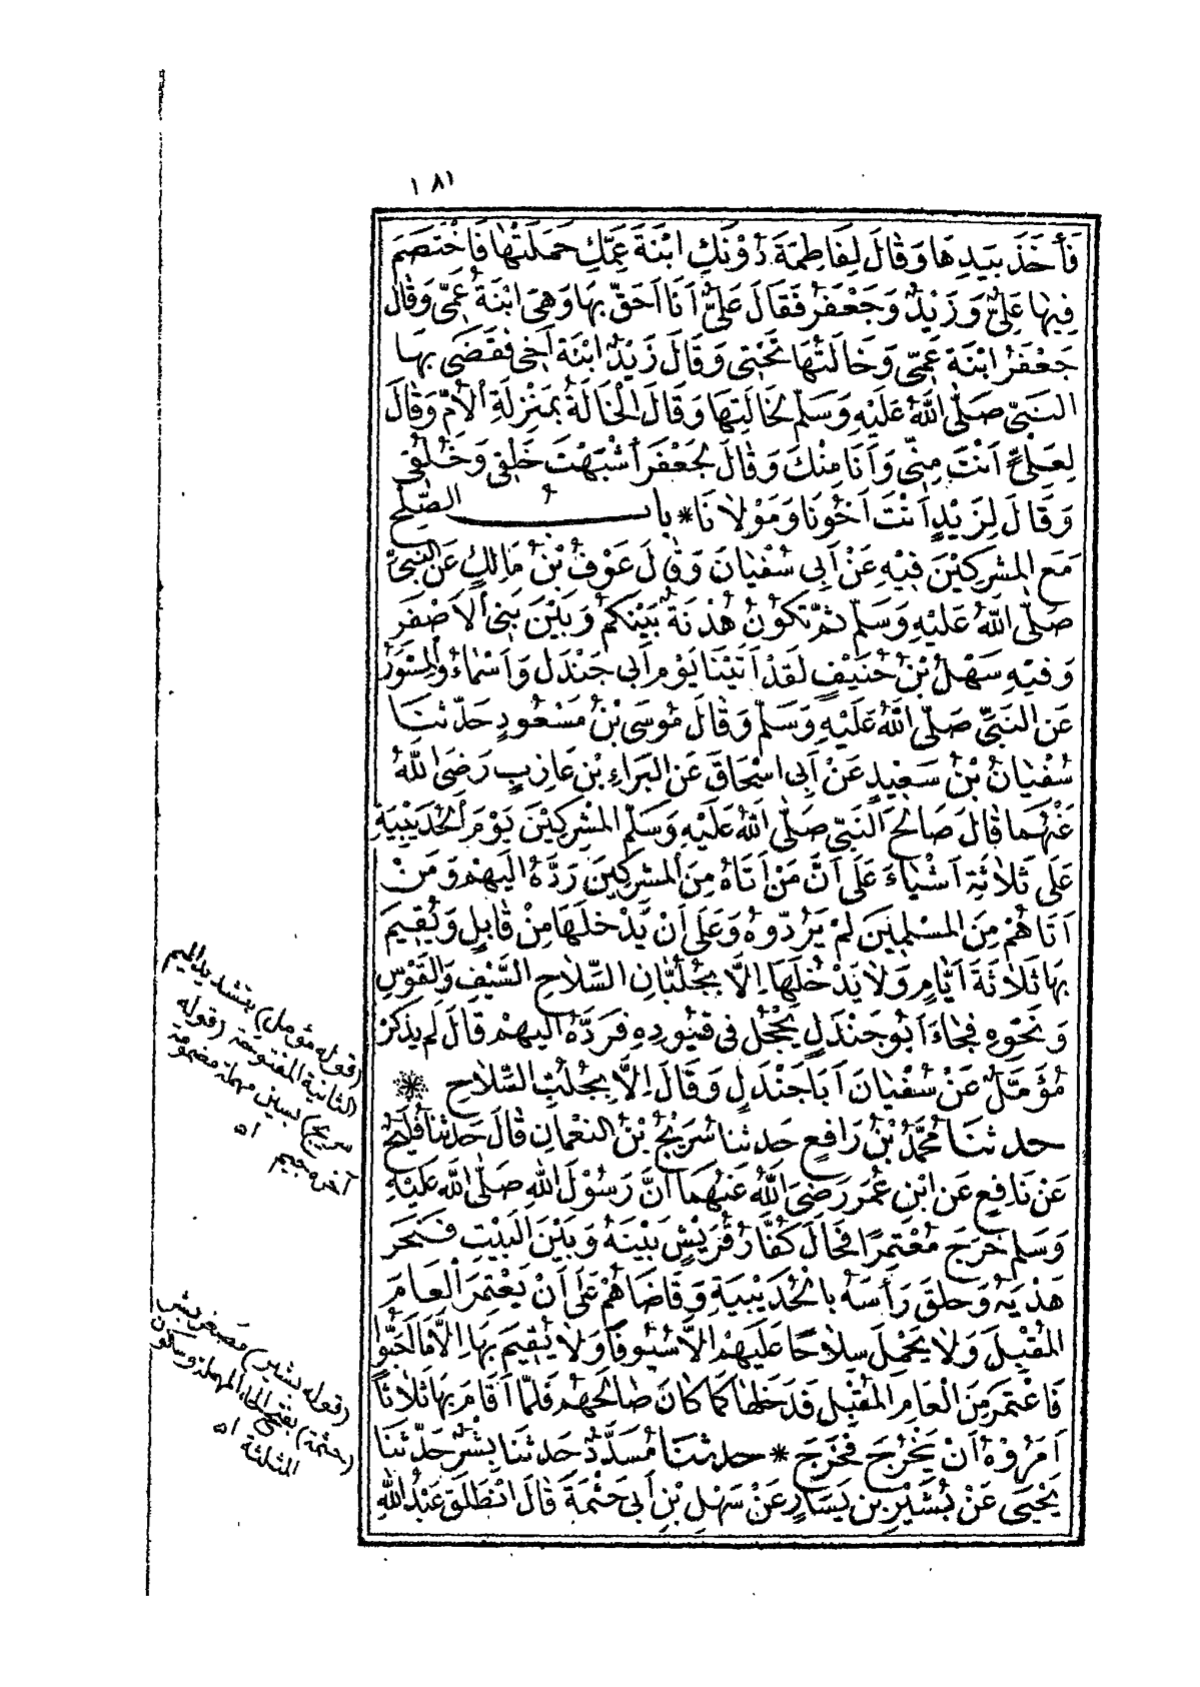 ١٨١
فَأَخَذَ بِيَدِهَا وَقَالَ لِفَاطِمَةَ دُوْنَكِ ابْنَةَ عَمِّكِ حَمَلَتْهَا فَاخْتَصَمَ
فِيهَا عَلِيٌّ وَزَيْدٌ وَجَعْفَرٌ فَقَالَ عَلِيٌّ أَنَا أَحَقُّ بِهَا وَهِيَ ابْنَةُ عَمِّي وَقَالَ
جَعْفَرٌ ابْنَةُ عَمِّي وَخَالَتُهَا تَحْتِي وَقَالَ زَيْدٌ ابْنَةُ أَخِي فَقَضَى بِهَا
النَّبِيُّ صَلَّى اللهُ عَلَيْهِ وَسَلَّمَ لِخَالَتِهَا وَقَالَ الْخَالَةُ بِمَنْزِلَةِ الْأُمِّ وَقَالَ
لِعَلِيٍّ أَنْتَ مِنِّي وَأَنَا مِنْكَ وَقَالَ لِجَعْفَرٍ أَشْبَهْتَ خَلْقِي وَخُلُقِي
وَقَالَ لِزَيْدٍ أَنْتَ أَخُونَا وَمَوْلَانَا * بَابُ الصُّلْحِ
مَعَ الْمُشْرِكِيْنَ فِيْهِ عَنْ أَبِي سُفْيَانَ وَقَالَ عَوْفُ بْنُ مَالِكٍ عَنِ النَّبِيِّ
صَلَّى اللهُ عَلَيْهِ وَسَلَّمَ ثُمَّ تَكُوْنُ هُدْنَةٌ بَيْنَكُمْ وَبَيْنَ بَنِي الْأَصْفَرِ
وَفِيْهِ سَهْلُ بْنُ حُنَيْفٍ لَقَدْ أَتَيْنَا يَوْمَ أَبِي جَنْدَلٍ وَأَسْمَاءُ وَالْمِسْوَرُ
عَنِ النَّبِيِّ صَلَّى اللهُ عَلَيْهِ وَسَلَّمَ وَقَالَ مُوسَى بْنُ مَسْعُودٍ حَدَّثَنَا
سُفْيَانُ بْنُ سَعِيدٍ عَنْ أَبِي اسْحَاقَ عَنِ الْبَرَاءِ بْنِ عَازِبٍ رَضِيَ اللهُ
عَنْهُمَا قَالَ صَالَحَ النَّبِيُّ صَلَّى اللهُ عَلَيْهِ وَسَلَّمَ الْمُشْرِكِيْنَ يَوْمَ الْحُدَيْبِيَةِ
عَلَى ثَلَاثَةِ أَشْيَاءَ عَلَى أَنَّ مَنْ أَتَاهُ مِنَ الْمُشْرِكِينَ رَدَّهُ إِلَيْهِمْ وَمَنْ
أَتَاهُمْ مِنَ الْمُسْلِمِينَ لَمْ يَرُدُّوهُ وَعَلَى أَنْ يَدْخُلَهَا مِنْ قَابِلٍ وَيُقِيمَ
بِهَا ثَلَاثَةَ أَيَّامٍ وَلَا يَدْخُلَهَا إِلَّا بِجُلُبَّانِ السِّلَاحِ السَّيْفِ وَالْقَوْسِ
وَنَحْوِهِ فَجَاءَ أَبُو جَنْدَلٍ يَحْجُلُ فِي قُيُودِهِ فَرَدَّهُ إِلَيْهِمْ قَالَ لَمْ يَذْكُرْ
مُؤَمَّلٌ عَنْ سُفْيَانَ أَبَا جَنْدَلٍ وَقَالَ إِلَّا بِجُلُبِّ السِّلَاحِ *
حدثنا مُحَمَّدُ بْنُ رَافِعٍ حدثنا سُرَيْجُ بْنُ النُّعْمَانِ قَالَ حَدثنَا فُلَيْحٌ
عَنْ نَافِعٍ عَنِ ابْنِ عُمَرَ رَضِيَ اللهُ عَنْهُمَا أَنَّ رَسُوْلَ اللهِ صَلَّى اللهُ عَلَيْهِ
وَسَلَّمَ خَرَجَ مُعْتَمِرًا فَحَالَ كُفَّارُ قُرَيْشٍ بَيْنَهُ وَبَيْنَ الْبَيْتِ فَنَحَرَ
هَدْيَهُ وَحَلَقَ رَأْسَهُ بِالْحُدَيْبِيَةِ وَقَاضَاهُمْ عَلَى أَنْ يَعْتَمِرَ الْعَامَ
الْمُقْبِلَ وَلَا يَحْمِلَ سِلَاحًا عَلَيْهِمْ إِلَّا سُيُوفًا وَلَا يُقِيمَ بِهَا إِلَّا مَا أَحَبُّوا
فَاعْتَمَرَ مِنَ الْعَامِ الْمُقْبِلِ فَدَخَلَهَا كَمَا كَانَ صَالَحَهُمْ فَلَمَّا أَقَامَ بِهَا ثَلَاثًا
أَمَرُوْهُ أَنْ يَخْرُجَ فَخَرَجَ * حدثنا مُسَدَّدٌ حَدثنَا بِشْرٌ حَدَّثَنَا
يَحْيَى عَنْ بُشَيْرِ بْنِ يَسَارٍ عَنْ سَهْلِ بْنِ أَبِي حَثْمَةَ قَالَ انْطَلَقَ عَبْدُ اللهِ
(قوله مؤمل) بتشديد الميم
الثانية المفتوحة (قوله
سريج) بسين مهملة مضمومة
آخره جيم اه
(قوله بشير) مصغر بشر
(حثمة) بفتح الحاء المهملة وسكون
المثلثة اه